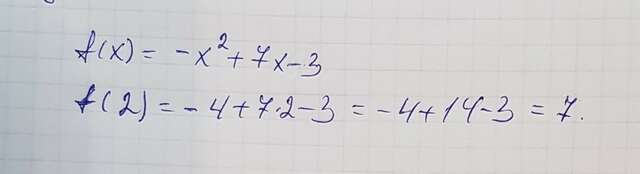 f(x) = -x² + 7x - 3
f(2) = - 4 + 7·2 - 3 = - 4 + 14 - 3 = 7.